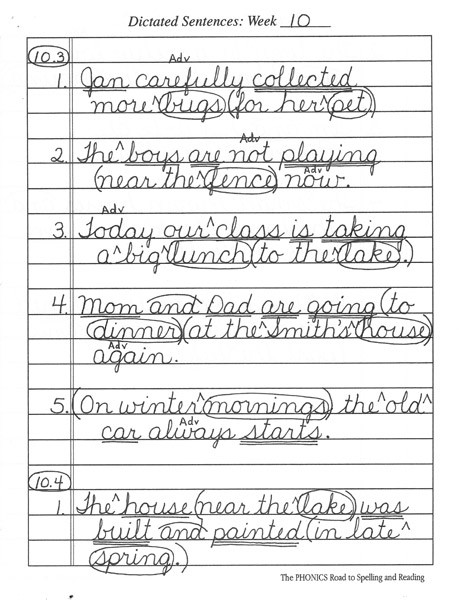 Dictated Sentences: Week 10
10.3
Adv
1. Jan carefully collected
more ^ bugs (for her ^ pet)
Adv
2. The ^ boys are not playing
(near the ^ fence) now.
Adv
Adv
3. Today our ^ class is taking
a ^ big ^ lunch (to the ^ lake.)
4. Mom and Dad are going (to
dinner) (at the ^ Smith's ^ house)
Adv
again.
5. (On winter ^ mornings) the ^ old ^
Adv
car always starts.
10.4
1. The ^ house (near the ^ lake) was
built and painted (in late ^
spring.)
The PHONICS Road to Spelling and Reading